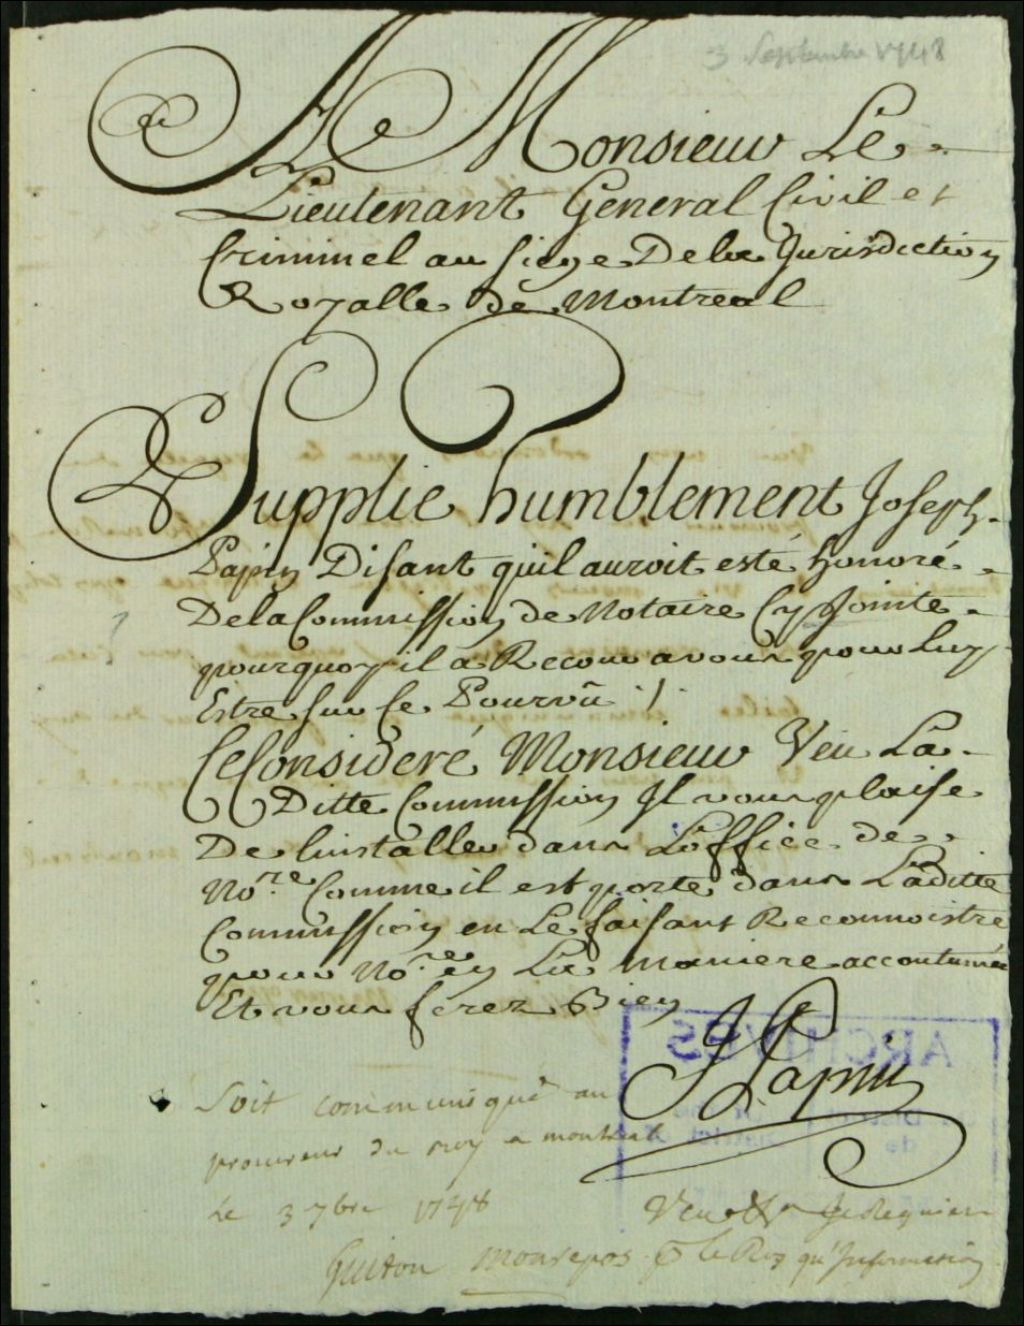 3 Septembre 1748
A Monsieur Le
Lieutenant General Civil et
Criminel au siege Dela Jurisdiction
Royalle de Montreal
Supplie humblement Joseph
Papin Disant quil auroit esté honoré
De la Commission de Notaire Cy Jointe
pourquoy il a Recour a vous pour Luy
Estre sur ce Pourvû ./.
Ce Consideré Monsieur Veu La
Ditte Commission Il vous plaise
De linstaller dans Loffice de
No.re Comme il est porté dans Laditte
Commission en Le faisant Reconnoistre
pour No.re en La maniere accoutumée
Et vous ferez Bien
JPapin
ARCHIVES
Soit communiqué au
procureur du roy a montreal
le 3 7bre 1748
Veu &a Je Requiers
Guiton Monrepos
le Roy qu'Information